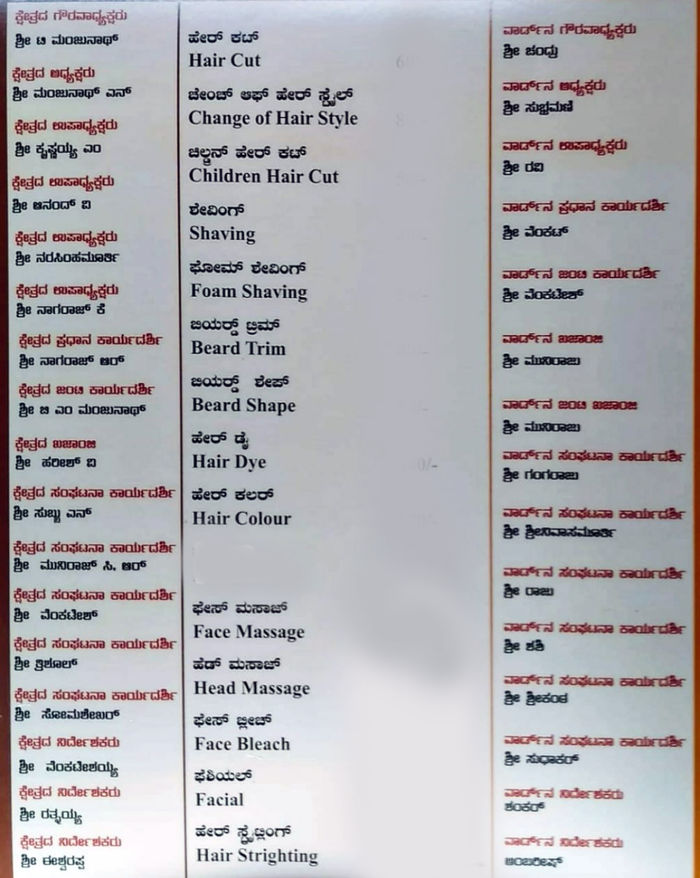 ಕ್ಷೇತ್ರದ ಗೌರವಾಧ್ಯಕ್ಷರು
ಶ್ರೀ ಟಿ ಮಂಜುನಾಥ್
ಕ್ಷೇತ್ರದ ಅಧ್ಯಕ್ಷರು
ಶ್ರೀ ಮಂಜುನಾಥ್ ಎನ್
ಕ್ಷೇತ್ರದ ಉಪಾಧ್ಯಕ್ಷರು
ಶ್ರೀ ಕೃಷ್ಣಯ್ಯ ಎಂ
ಕ್ಷೇತ್ರದ ಉಪಾಧ್ಯಕ್ಷರು
ಶ್ರೀ ಆನಂದ್ ವಿ
ಕ್ಷೇತ್ರದ ಉಪಾಧ್ಯಕ್ಷರು
ಶ್ರೀ ನರಸಿಂಹಮೂರ್ತಿ
ಕ್ಷೇತ್ರದ ಉಪಾಧ್ಯಕ್ಷರು
ಶ್ರೀ ನಾಗರಾಜ್ ಕೆ
ಕ್ಷೇತ್ರದ ಪ್ರಧಾನ ಕಾರ್ಯದರ್ಶಿ
ಶ್ರೀ ನಾಗರಾಜ್ ಆರ್
ಕ್ಷೇತ್ರದ ಜಂಟಿ ಕಾರ್ಯದರ್ಶಿ
ಶ್ರೀ ಬಿ ಎಂ ಮಂಜುನಾಥ್
ಕ್ಷೇತ್ರದ ಖಜಾಂಚಿ
ಶ್ರೀ ಹರೀಶ್ ವಿ
ಕ್ಷೇತ್ರದ ಸಂಘಟನಾ ಕಾರ್ಯದರ್ಶಿ
ಶ್ರೀ ಸುಬ್ಬು ಎನ್
ಕ್ಷೇತ್ರದ ಸಂಘಟನಾ ಕಾರ್ಯದರ್ಶಿ
ಶ್ರೀ ಮುನಿರಾಜ್ ಸಿ. ಆರ್
ಕ್ಷೇತ್ರದ ಸಂಘಟನಾ ಕಾರ್ಯದರ್ಶಿ
ಶ್ರೀ ವೆಂಕಟೇಶ್
ಕ್ಷೇತ್ರದ ಸಂಘಟನಾ ಕಾರ್ಯದರ್ಶಿ
ಶ್ರೀ ತ್ರಿಶೂಲ್
ಕ್ಷೇತ್ರದ ಸಂಘಟನಾ ಕಾರ್ಯದರ್ಶಿ
ಶ್ರೀ ಸೋಮಶೇಖರ್
ಕ್ಷೇತ್ರದ ನಿರ್ದೇಶಕರು
ಶ್ರೀ ವೆಂಕಟೇಶಯ್ಯ
ಕ್ಷೇತ್ರದ ನಿರ್ದೇಶಕರು
ಶ್ರೀ ರತ್ನಯ್ಯ
ಕ್ಷೇತ್ರದ ನಿರ್ದೇಶಕರು
ಶ್ರೀ ಈಶ್ವರಪ್ಪ
ಹೇರ್ ಕಟ್
Hair Cut
ಚೇಂಜ್ ಆಫ್ ಹೇರ್ ಸ್ಟೈಲ್
Change of Hair Style
ಚಿಲ್ಡ್ರನ್ ಹೇರ್ ಕಟ್
Children Hair Cut
ಶೇವಿಂಗ್
Shaving
ಫೋಮ್ ಶೇವಿಂಗ್
Foam Shaving
ಬಿಯರ್ಡ್ ಟ್ರಿಮ್
Beard Trim
ಬಿಯರ್ಡ್ ಶೇಪ್
Beard Shape
ಹೇರ್ ಡೈ
Hair Dye
ಹೇರ್ ಕಲರ್
Hair Colour
ಫೇಸ್ ಮಸಾಜ್
Face Massage
ಹೆಡ್ ಮಸಾಜ್
Head Massage
ಫೇಸ್ ಬ್ಲೀಚ್
Face Bleach
ಫೆಶಿಯಲ್
Facial
ಹೇರ್ ಸ್ಟ್ರೈಟ್ನಿಂಗ್
Hair Strighting
ವಾರ್ಡ್‌ನ ಗೌರವಾಧ್ಯಕ್ಷರು
ಶ್ರೀ ಚಂದ್ರು
ವಾರ್ಡ್‌ನ ಅಧ್ಯಕ್ಷರು
ಶ್ರೀ ಸುಬ್ರಮಣಿ
ವಾರ್ಡ್‌ನ ಉಪಾಧ್ಯಕ್ಷರು
ಶ್ರೀ ರವಿ
ವಾರ್ಡ್‌ನ ಪ್ರಧಾನ ಕಾರ್ಯದರ್ಶಿ
ಶ್ರೀ ವೆಂಕಟ್
ವಾರ್ಡ್‌ನ ಜಂಟಿ ಕಾರ್ಯದರ್ಶಿ
ಶ್ರೀ ವೆಂಕಟೇಶ್
ವಾರ್ಡ್‌ನ ಖಜಾಂಚಿ
ಶ್ರೀ ಮುನಿರಾಜು
ವಾರ್ಡ್‌ನ ಜಂಟಿ ಖಜಾಂಚಿ
ಶ್ರೀ ಮುನಿರಾಜು
ವಾರ್ಡ್‌ನ ಸಂಘಟನಾ ಕಾರ್ಯದರ್ಶಿ
ಶ್ರೀ ಗಂಗರಾಜು
ವಾರ್ಡ್‌ನ ಸಂಘಟನಾ ಕಾರ್ಯದರ್ಶಿ
ಶ್ರೀ ಶ್ರೀನಿವಾಸಮೂರ್ತಿ
ವಾರ್ಡ್‌ನ ಸಂಘಟನಾ ಕಾರ್ಯದರ್ಶಿ
ಶ್ರೀ ರಾಜು
ವಾರ್ಡ್‌ನ ಸಂಘಟನಾ ಕಾರ್ಯದರ್ಶಿ
ಶ್ರೀ ಶಶಿ
ವಾರ್ಡ್‌ನ ಸಂಘಟನಾ ಕಾರ್ಯದರ್ಶಿ
ಶ್ರೀ ಶ್ರೀಕಂಠ
ವಾರ್ಡ್‌ನ ಸಂಘಟನಾ ಕಾರ್ಯದರ್ಶಿ
ಶ್ರೀ ಸುಧಾಕರ್
ವಾರ್ಡ್‌ನ ನಿರ್ದೇಶಕರು
ಶಂಕರ್
ವಾರ್ಡ್‌ನ ನಿರ್ದೇಶಕರು
ಅಂಬರೀಷ್